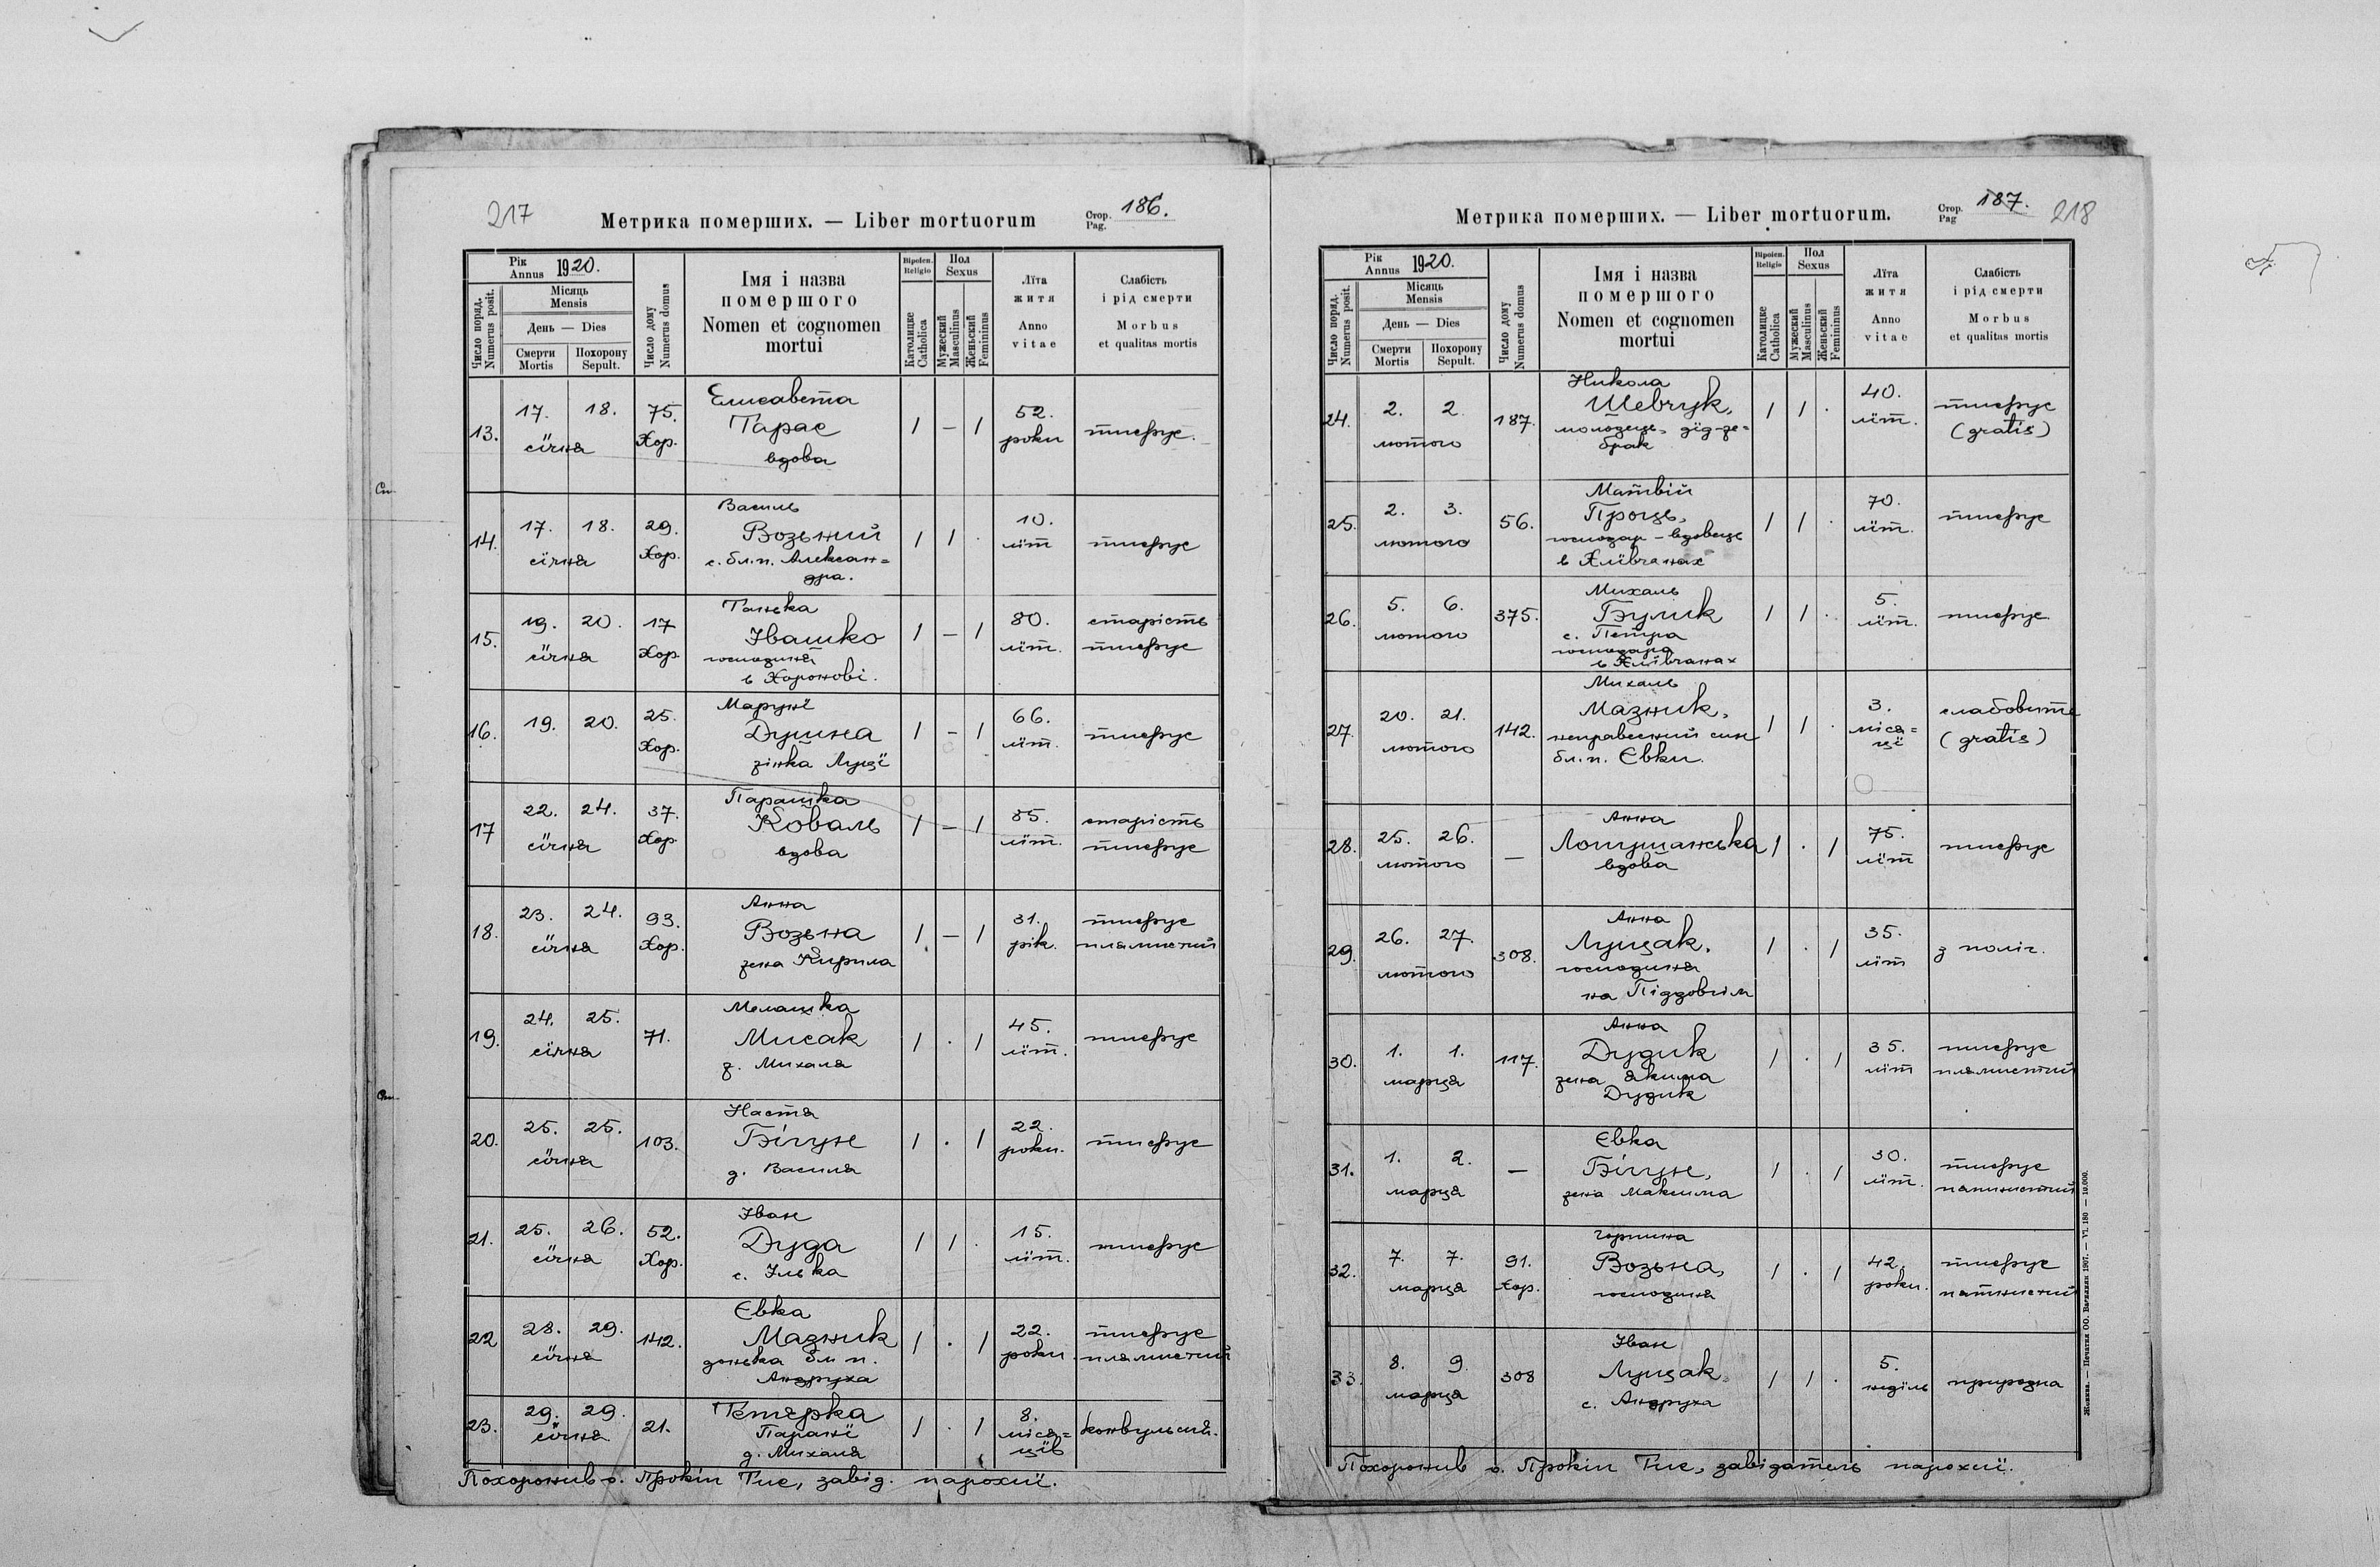 217
Метрика померших. — Liber mortuorum
Стор. Pag. 186.
Рік Annus 1920.
Число поряд. Numerus posit.
Місяць Mensis
День — Dies
Смерти Mortis
Похорону Sepult.
Число дому Numerus domus
Імя і назва
помершого
Nomen et cognomen
mortui
Віроісп. Religio
Католицке Catholica
Пол Sexus
Мужеский Masculinus
Женьский Femininus
Лїта
житя
Anno
vitae
Слабість
і рід смерти
Morbus
et qualitas mortis
13. 17. 18. сїчня 75. Хор. Елисавета Тарас вдова 1 — 1 52. роки тифус.
14. 17. 18. сїчня 29. Хор. Василь Возьний с. бл. п. Александра. 1 1 . 10. лїт тифус
15. 19. 20. сїчня 17 Хор. Танька Івашко господиня в Хоронові. 1 — 1 80. лїт. старість тифус
16. 19. 20. 25. Хор. Марунї Душна жінка Луцї 1 — 1 66. лїт. тифус
17 22. 24. сїчня 37. Хор. Парашка Коваль вдова 1 — 1 85. лїт. старість тифус
18. 23. 24. сїчня 93. Хор. Анна Возьна жена Кирила 1 — 1 31. рік. тифус плямистий
19. 24. 25. сїчня 71. Мелашка Мисак ж. Михала 1 . 1 45. лїт. тифус
20. 25. 25. сїчня 103. Настя Бігун д. Василя 1 . 1 22. роки. тифус
21. 25. 26. сїчня 52. Хор. Іван Дуда с. Ілька 1 1 . 15. лїт. тифус
22 28. 29. сїчня 142. Евка Мазник донька бл п. Андруха 1 . 1 22. роки. тифус плямистий
23. 29. 29. сїчня 21. Тетерка Паранї д. Михаля 1 . 1 8. місяцїв конвульсий.
Похоронив о. Прокіп Тис, завід. парохії.
Метрика померших. — Liber mortuorum.
Стор. Pag 187. 218
Рік Annus 1920.
Число поряд. Numerus posit.
Місяць Mensis
День — Dies
Смерти Mortis
Похорону Sepult.
Число дому Numerus domus
Імя і назва
помершого
Nomen et cognomen
mortui
Віроісп. Religio
Католицке Catholica
Пол Sexus
Мужеский Masculinus
Женьский Femininus
Лїта
житя
Anno
vitae
Слабість
і рід смерти
Morbus
et qualitas mortis
24. 2. 2. лютого 187. Никола Шевчук, молодець, дїд-жебрак 1 1 . 40. лїт. тифус (gratis)
25. 2. 3. лютого 56. Матвій Проць, господар – вдовець в Хлївчанах 1 1 . 70. лїт. тифус
26. 5. 6. лютого 375. Михаль Булик с. Петра господара в Хлївчанах 1 1 . 5. лїт. тифус
27. 20. 21. лютого 142. Михаль Мазник, неправесний син бл. п. Евки. 1 1 . 3. місяцї слабовите (gratis)
28. 25. 26. лютого — Анна Лопушанська вдова 1 . 1 75. лїт тифус
29. 26. 27. лютого 308. Анна Луцак, господиня на Піддовгім 1 . 1 35. лїт з поліг.
30. 1. 1. марця 117. Анна Дудик жена Якима Дудик 1 . 1 35. лїт тифус плямистий
31. 1. 2. марця — Евка Бігун, жена Максима 1 . 1 30. лїт. тифус
32. 7. 7. марця 91. Хор. Возьна, господиня 1 . 1 42. роки. тифус
33. 8. 9. марця 308 Іван Луцак, с. Андруха 1 1 . 5. недїль природна
Похоронив о. Прокіп Тис, завідатель парохії.
Жовква. — Печатня ОО. Василиян 1907. — VI. 180 — 10.000.